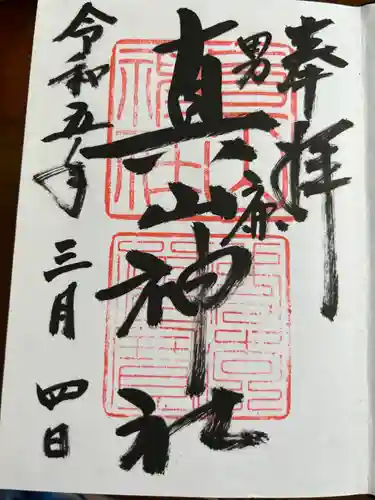 奉拝
男鹿
真山神社
令和五年
三月
四日